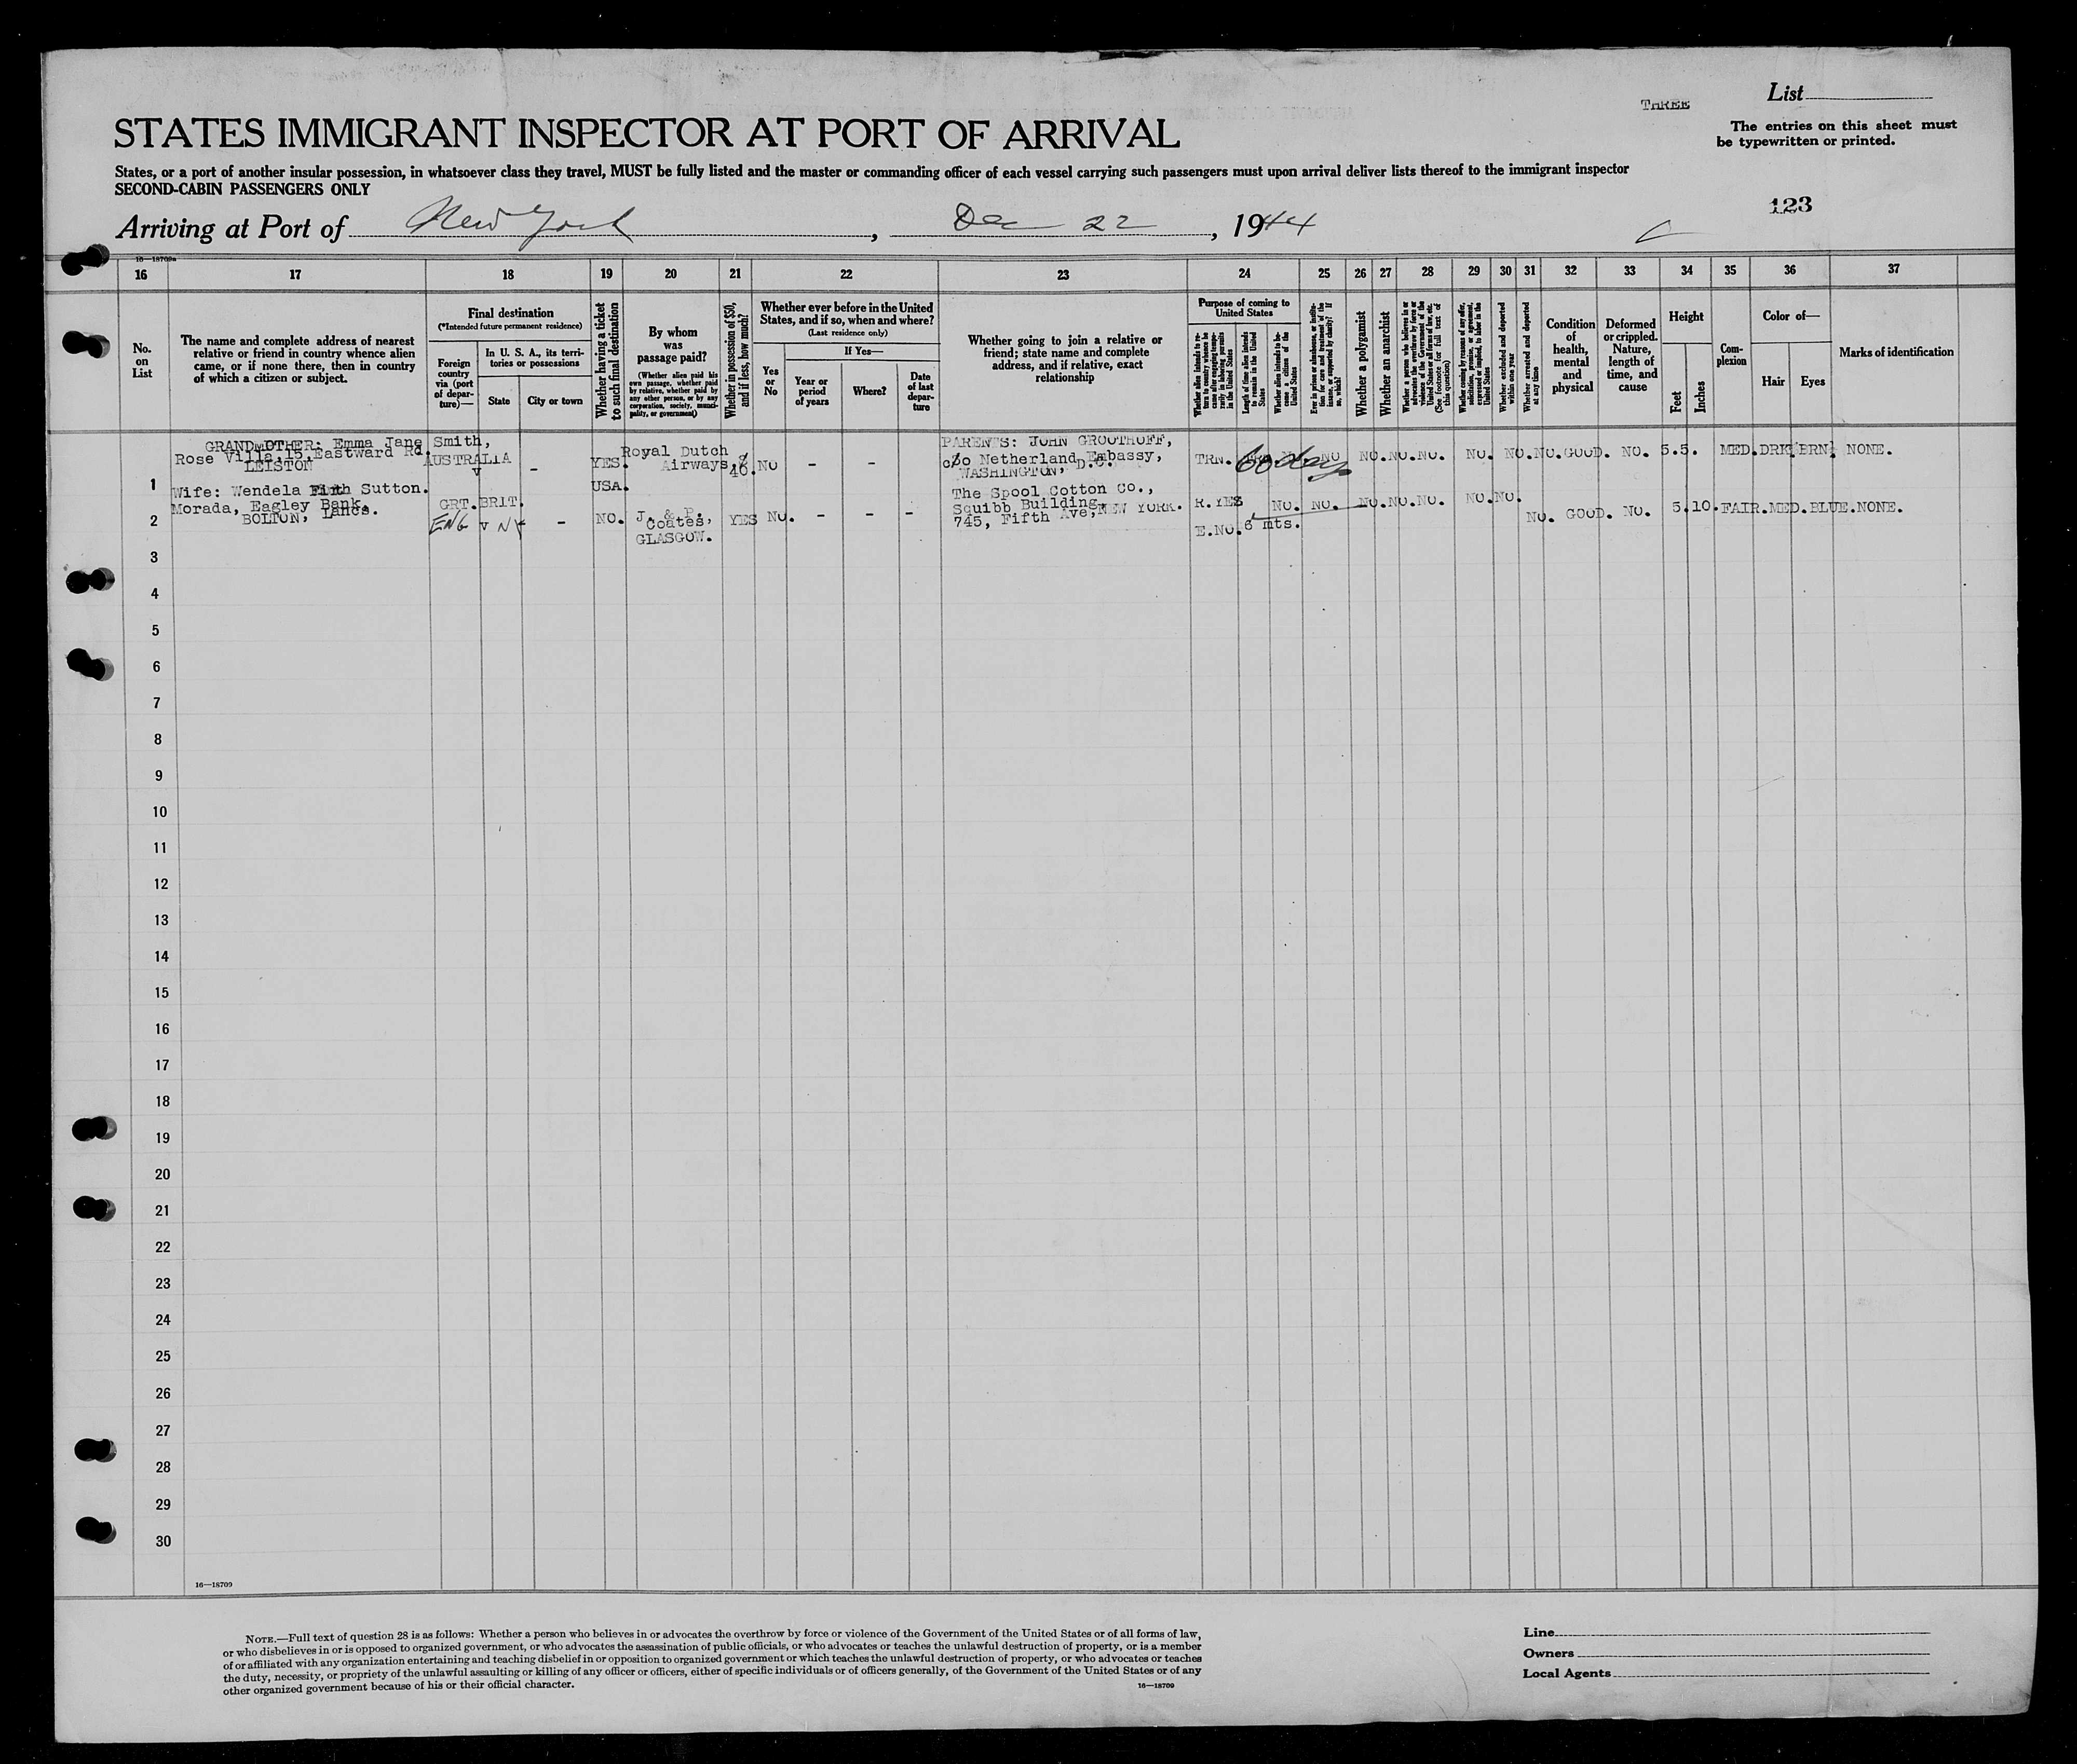 THREE
List
The entries on this sheet must
be typewritten or printed.
STATES IMMIGRANT INSPECTOR AT PORT OF ARRIVAL
States, or a port of another insular possession, in whatsoever class they travel, MUST be fully listed and the master or commanding officer of each vessel carrying such passengers must upon arrival deliver lists thereof to the immigrant inspector
SECOND-CABIN PASSENGERS ONLY
123
Arriving at Port of New York, Dec 22, 1944
16—18709a
16 17 18 19 20 21 22 23 24 25 26 27 28 29 30 31 32 33 34 35 36 37
No. on List
The name and complete address of nearest
relative or friend in country whence alien
came, or if none there, then in country
of which a citizen or subject.
Final destination
(*Intended future permanent residence)
Foreign
country
via (port
of depar-
ture)—
In U. S. A., its terri-
tories or possessions
State
City or town
Whether having a ticket
to such final destination
By whom
was
passage paid?
(Whether alien paid his
own passage, whether paid
by relative, whether paid by
any other person, or by any
corporation, society, munici-
pality, or government)
Whether in possession of $50,
and if less, how much?
Whether ever before in the United
States, and if so, when and where?
(Last residence only)
Yes
or
No
If Yes—
Year or
period
of years
Where?
Date
of last
depar-
ture
Whether going to join a relative or
friend; state name and complete
address, and if relative, exact
relationship
Purpose of coming to
United States
Whether alien intends to re-
turn to country whence he
came after engaging tempo-
rarily in laboring pursuits
in the United States
Length of time alien intends
to remain in the United
States
Whether alien intends to be-
come a citizen of the
United States
Ever in prison or almshouse, or institu-
tion for care and treatment of the
insane, or supported by charity? If
so, which?
Whether a polygamist
Whether an anarchist
Whether a person who believes in or
advocates the overthrow by force or
violence of the Government of the
United States or all forms of law, etc.
(See footnote for full text of
this question)
Whether coming by reasons of any offer,
solicitation, promise, or agreement,
expressed or implied, to labor in the
United States
Whether excluded and deported
within one year
Whether arrested and deported
at any time
Condition
of
health,
mental
and
physical
Deformed
or crippled.
Nature,
length of
time, and
cause
Height
Feet
Inches
Com-
plexion
Color of—
Hair
Eyes
Marks of identification
GRANDMOTHER: Emma Jane Smith,
Rose Villa, 15, Eastward Rd.
LEISTON
AUSTRALIA
v
-
YES.
USA.
Royal Dutch
Airways
NO
-
-
PARENTS: JOHN GROOTHOFF,
c/o Netherland Embassy,
WASHINGTON, D.C.
TRN.
60 days
NO
NO. NO. NO. NO. NO. NO. GOOD. NO. 5.5. MED. DRK. BRN. NONE.
1
Wife: Wendela Firth Sutton.
Morada, Eagley Bank.
BOLTON, Lancs.
2
GRT. BRIT.
ENG v NY
-
NO.
J. & P.
Coates,
GLASGOW.
YES
NO.
-
-
-
The Spool Cotton Co.,
Squibb Building,
745, Fifth Ave, NEW YORK.
R.YES
E.NO.
6 mts.
NO. NO. NO. NO. NO. NO. NO. NO. GOOD. NO. 5.10. FAIR. MED. BLUE. NONE.
3
4
5
6
7
8
9
10
11
12
13
14
15
16
17
18
19
20
21
22
23
24
25
26
27
28
29
30
16—18709
NOTE.—Full text of question 28 is as follows: Whether a person who believes in or advocates the overthrow by force or violence of the Government of the United States or of all forms of law,
or who disbelieves in or is opposed to organized government, or who advocates the assassination of public officials, or who advocates or teaches the unlawful destruction of property, or is a member
of or affiliated with any organization entertaining and teaching disbelief in or opposition to organized government or which teaches the unlawful destruction of property, or who advocates or teaches
the duty, necessity, or propriety of the unlawful assaulting or killing of any officer or officers, either of specific individuals or of officers generally, of the Government of the United States or of any
other organized government because of his or their official character.
16—18709
Line
Owners
Local Agents